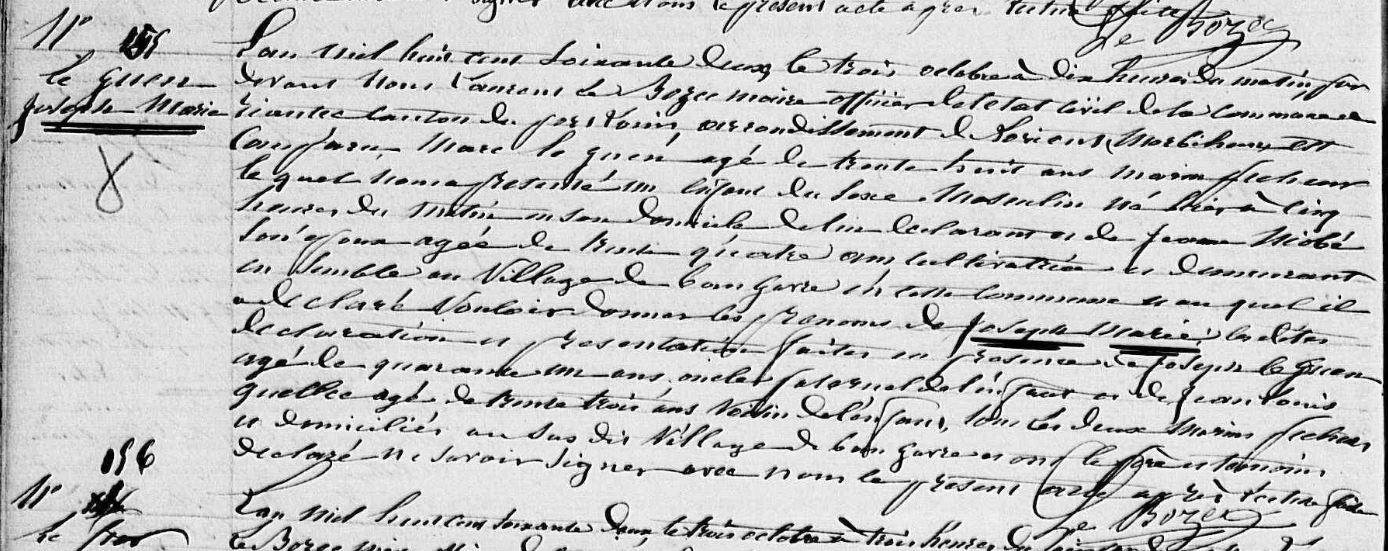 signer avec nous le présent acte après lecture faite
Le Bozec
N° 155
le Guen
Joseph Marie
L'an mil huit cent soixante deux, le trois octobre à dix heures du matin par
devant nous Laurent Le Bozec maire officier de l'état civil de la commune de
Riantec canton de port Louis, arrondissement de Lorient, Morbihan, est
Comparu Marc le guen agé de trente huit ans marin pecheur
le quel nous a presenté un enfant du sexe Masculin né hier à cinq
heures du matin en son domicile de lui declarant et de Jeanne
son épouse agée de trente quatre ans cultivatrice et demeurant
en semble au Village de ban Gavre en cette commune et au quel il
a declaré Vouloir donner les prenoms de Joseph Marie, les dites
declaration et presentation faites en presence de Joseph le Guen
agé de quarante un ans, oncle paternel de l'enfant et de Jean Louis
agé de trente trois ans Voisin de l'enfant, tous les deux Marins pecheurs
et domiciliés au sus dit Village de ban Gavre et ont le père et temoins
declaré ne savoir signer avec nous le present acte après lecture faite
Le Bozec
156
N°
le
L'an mil huit cent soixante deux, le trois octobre à trois heures du
le Bozec